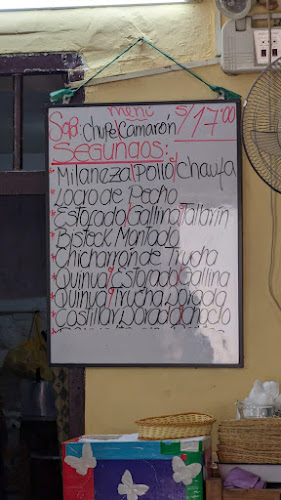 menú S/17.00
Sopa: Chupe/Camaron
Segundos:
* Milaneza/Pollo c/Chaufa
* Locro de Pecho
* Estofado/Gallina/Tallarin
* Bisteck Montado
* Chicharrón de Trucha
* Quinua c/Estofado/Gallina
* Quinua c/Trucha Dorada
* Costillar Dorado c/Choclo